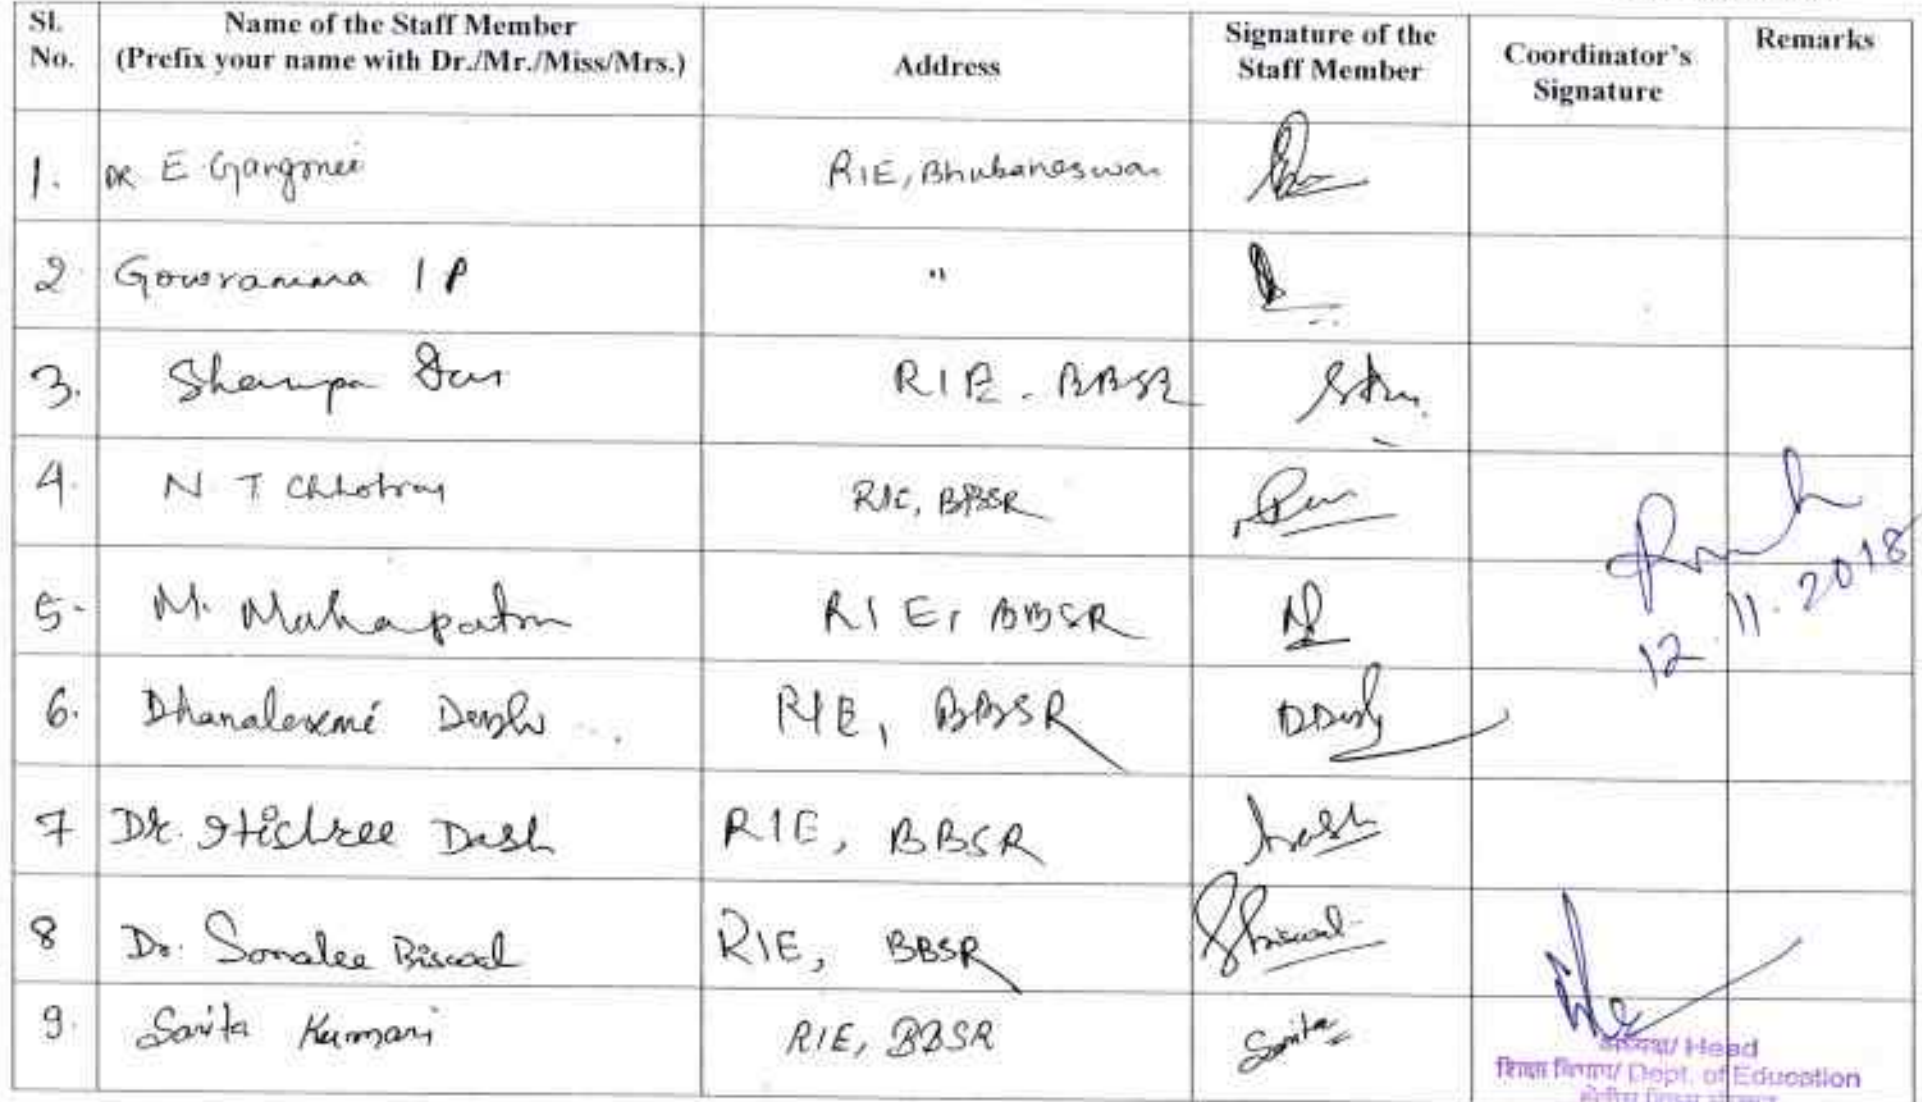 Sl. No. Name of the Staff Member (Prefix your name with Dr./Mr./Miss/Mrs.) Address Signature of the Staff Member Coordinator's Signature Remarks
1. DR E Gangmei RIE, Bhubaneswar
2. Gowramma I P "
3. Shampa Das RIE. BBSR
4. N T Chhotray RIE, BBSR
5. M. Mahapatra RIE, BBSR
12.11.2018
6. Dhanalexmi Dash RIE, BBSR DDash
7 Dr. Itishree Dash RIE, BBSR
8 Dr. Sonalee Biswal RIE, BBSR SBiswal
9. Sarita Kumari RIE, BBSR Sarita
अध्यक्ष/ Head
शिक्षा विभाग/ Dept. of Education